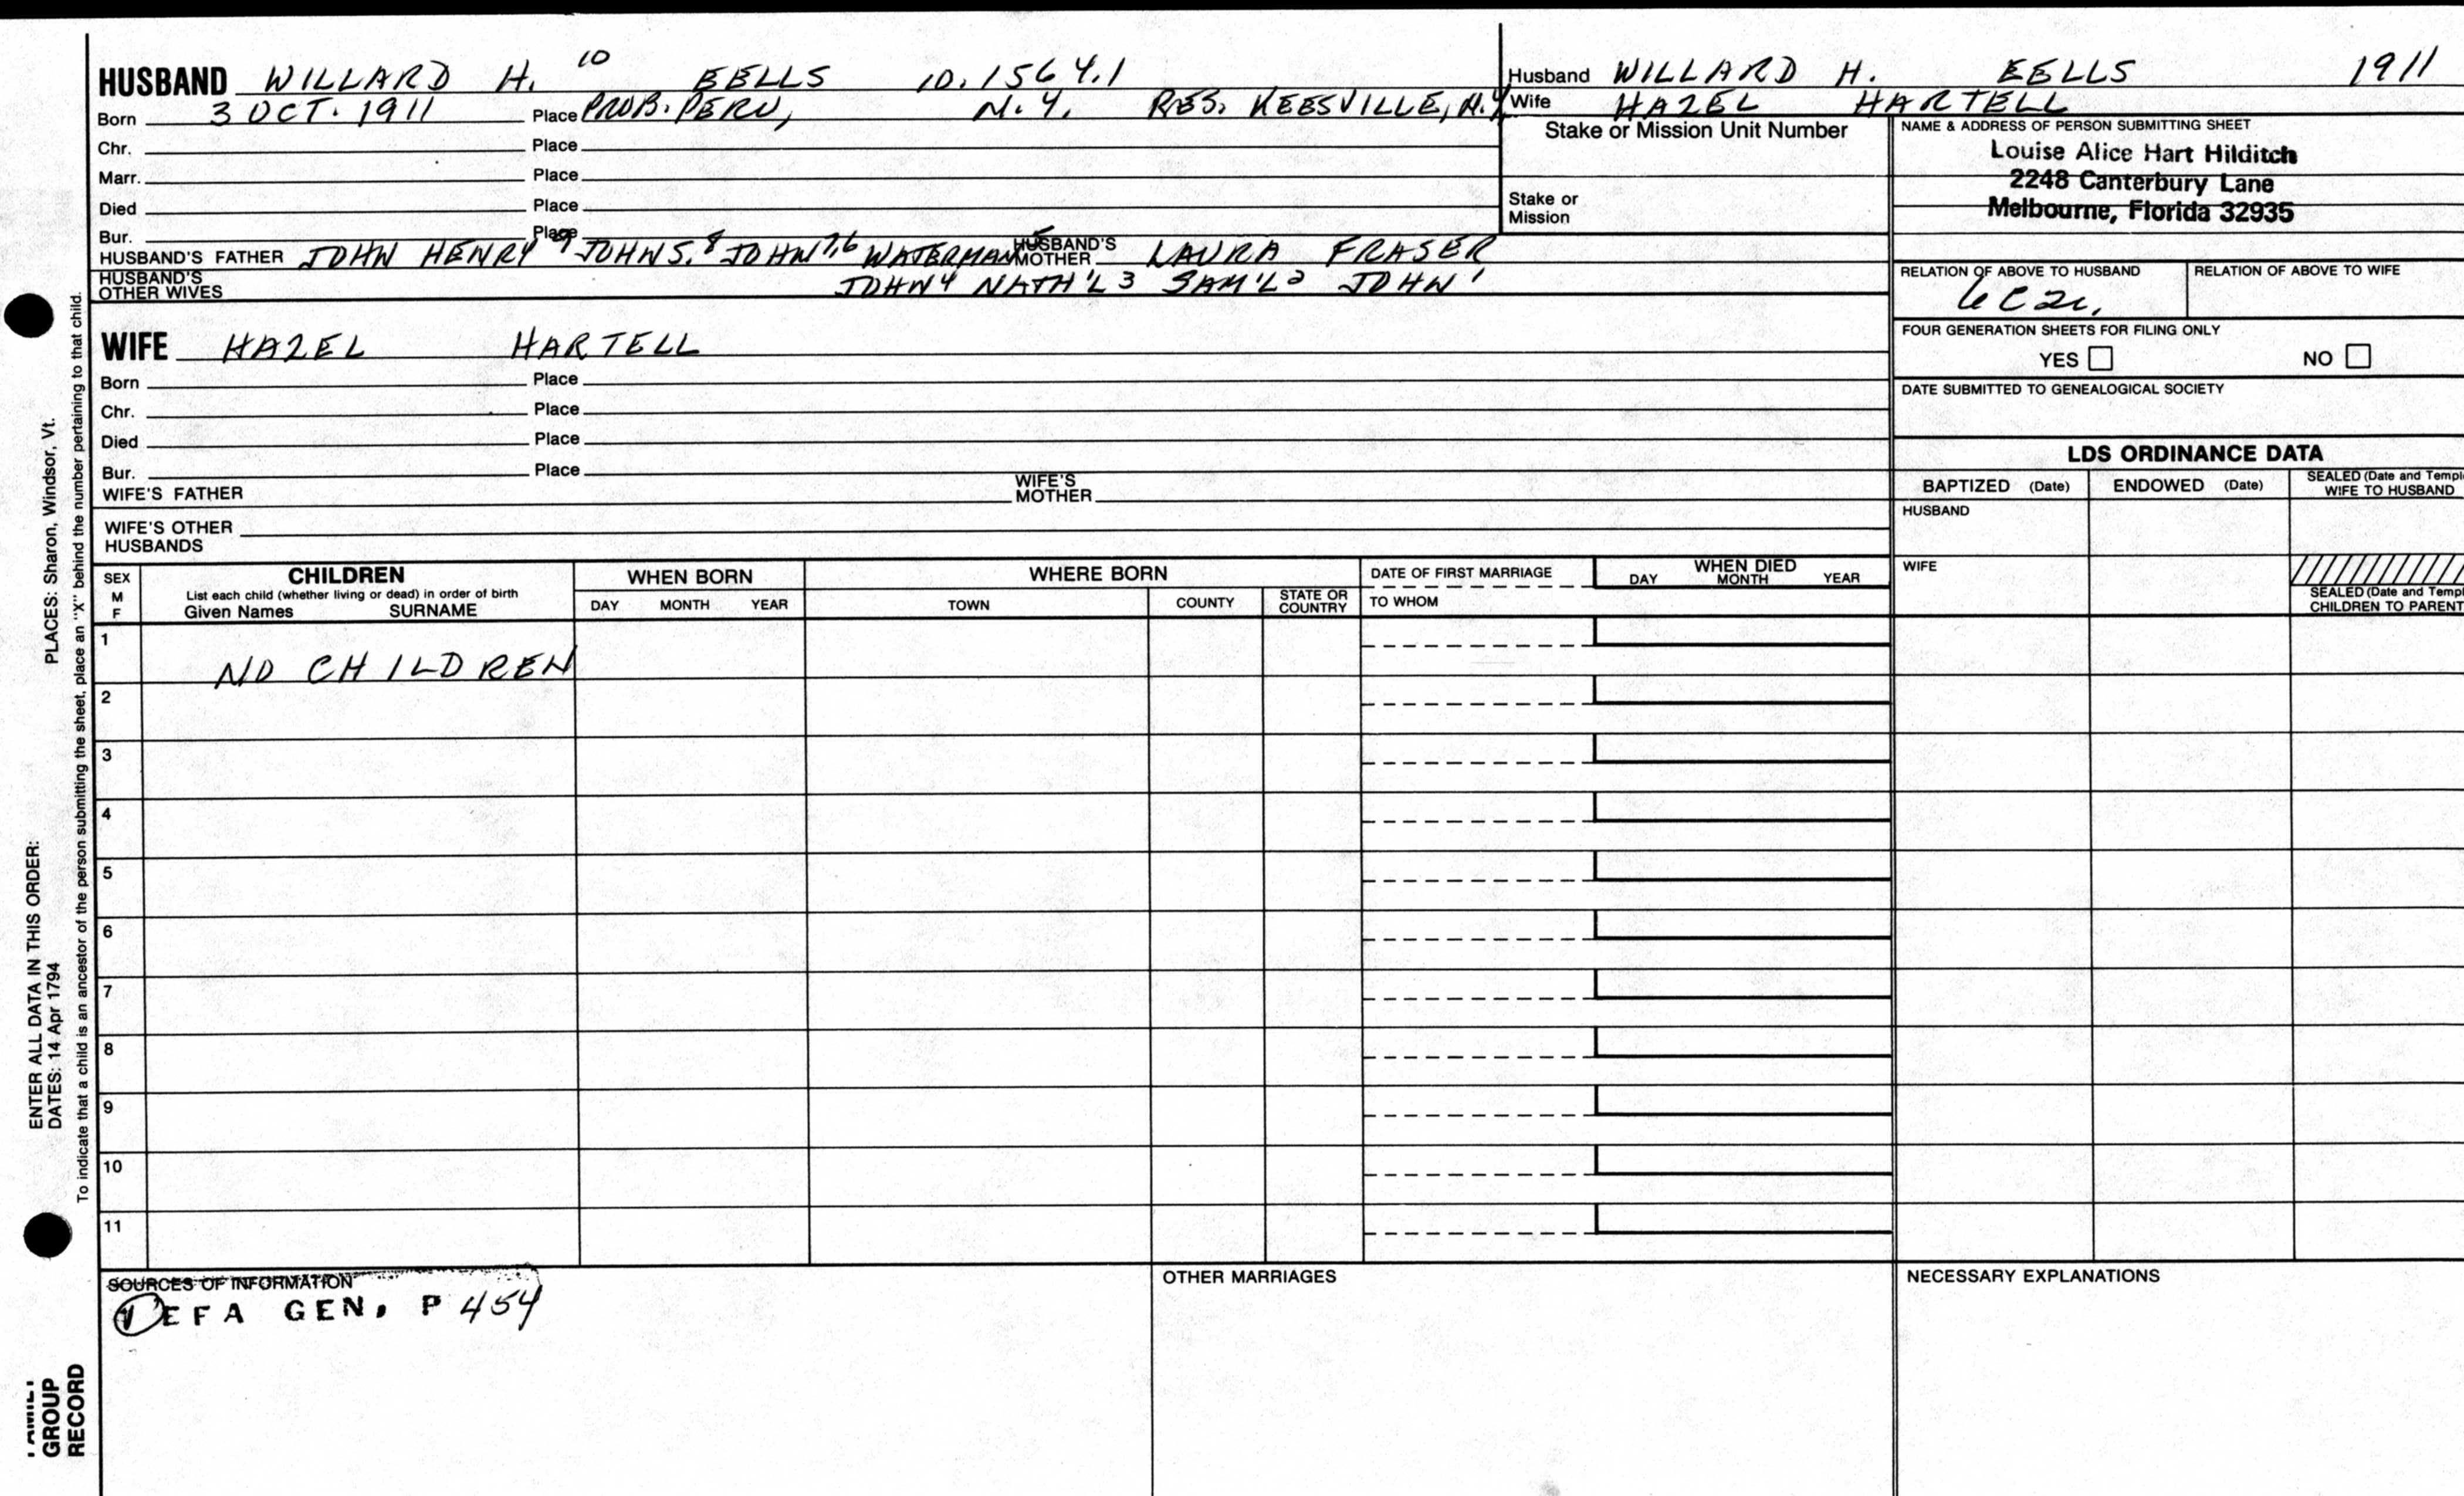 HUSBAND WILLARD H. 10 EELLS 10.1564.1
Born 3 OCT. 1911 Place PROB. PERU, N.Y. RES. KEESVILLE, N.Y.
Chr. Place
Marr. Place
Died Place
Bur. Place
HUSBAND'S FATHER JOHN HENRY 9 JOHN S. 8 JOHN 7,6 WATERMAN 5 HUSBAND'S MOTHER LAURA FRASER
HUSBAND'S OTHER WIVES JOHN 4 NATH'L 3 SAM'L 2 JOHN 1
Husband WILLARD H. EELLS 1911
Wife HAZEL HARTELL
Stake or Mission Unit Number
Stake or
Mission
NAME & ADDRESS OF PERSON SUBMITTING SHEET
Louise Alice Hart Hilditch
2248 Canterbury Lane
Melbourne, Florida 32935
RELATION OF ABOVE TO HUSBAND RELATION OF ABOVE TO WIFE
6C2r.
FOUR GENERATION SHEETS FOR FILING ONLY
YES NO
DATE SUBMITTED TO GENEALOGICAL SOCIETY
WIFE HAZEL HARTELL
Born Place
Chr. Place
Died Place
Bur. Place
WIFE'S FATHER WIFE'S MOTHER
WIFE'S OTHER
HUSBANDS
LDS ORDINANCE DATA
BAPTIZED (Date) ENDOWED (Date) SEALED (Date and Templ
WIFE TO HUSBAND
HUSBAND
WIFE
SEALED (Date and Templ
CHILDREN TO PARENT
SEX
M
F
CHILDREN
List each child (whether living or dead) in order of birth
Given Names SURNAME
WHEN BORN
DAY MONTH YEAR
WHERE BORN
TOWN COUNTY STATE OR COUNTRY
DATE OF FIRST MARRIAGE
TO WHOM
WHEN DIED
DAY MONTH YEAR
1 NO CHILDREN
2
3
4
5
6
7
8
9
10
11
SOURCES OF INFORMATION
1 EFA GEN. P 454
OTHER MARRIAGES
NECESSARY EXPLANATIONS
ENTER ALL DATA IN THIS ORDER:
DATES: 14 Apr 1794 PLACES: Sharon, Windsor, Vt.
To indicate that a child is an ancestor of the person submitting the sheet, place an "X" behind the number pertaining to that child.
FAMILY
GROUP
RECORD